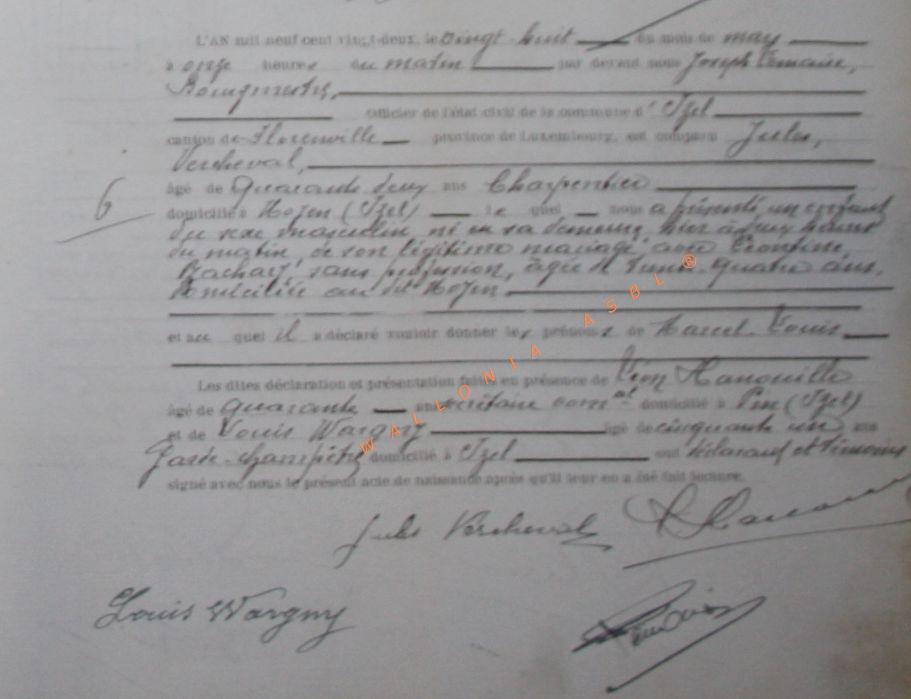 L'AN mil neuf cent vingt-deux, le vingt-huit du mois de may
à onze heures du matin par devant nous Joseph Lemaire,
Bourgmestre,
Officier de l'état civil de la commune d'Izel
canton de Florenville province de Luxembourg, est comparu Jules,
Vercheval,
âgé de Quarante deux ans Charpentier
6
domicilié à Moyen (Izel) le quel nous a présenté un enfant
du sexe masculin, né en sa demeure hier à deux heures
du matin, de son légitime mariage avec Léontine
Zachary, sans profession, âgée de trente-quatre ans,
domiciliée au dit Moyen
et au quel il a déclaré vouloir donner les prénoms de Marcel-Louis
Les dites déclaration et présentation faites en présence de Léon Hanouille
âgé de Quarante ans secrétaire comal domicilié à Pin (Izel)
et de Louis Wargny âgé de cinquante un ans
Garde-champêtre domicilié à Izel ont déclarant et témoins
signé avec nous le présent acte de naissance après qu'il leur en a été fait lecture.
Jules Vercheval
Louis Wargny
WALLONIA ASBL ®